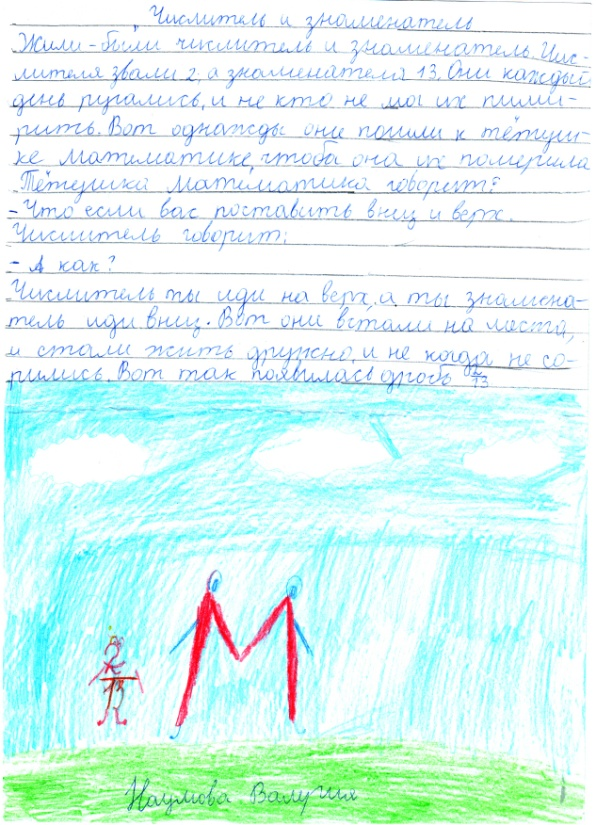 Числитель и знаменатель
Жили-были числитель и знаменатель. Чис-
лителя звали 2, а знаменателя 13. Они каждый
день ругались, и не кто не мог их пими-
рить. Вот однажды они пошли к тётуш-
ке математике, чтоба она их померила
Тётушка математика говорит:
- Что если вас поставить вниз и верх.
Числитель говорит:
- А как?
Числитель ты иди на верх, а ты знамена-
тель иди вниз. Вот они встали на места,
и стали жить дружно, и не когда не со-
рились. Вот так появилась дробь 2/13
2
13
Наумова Валерия